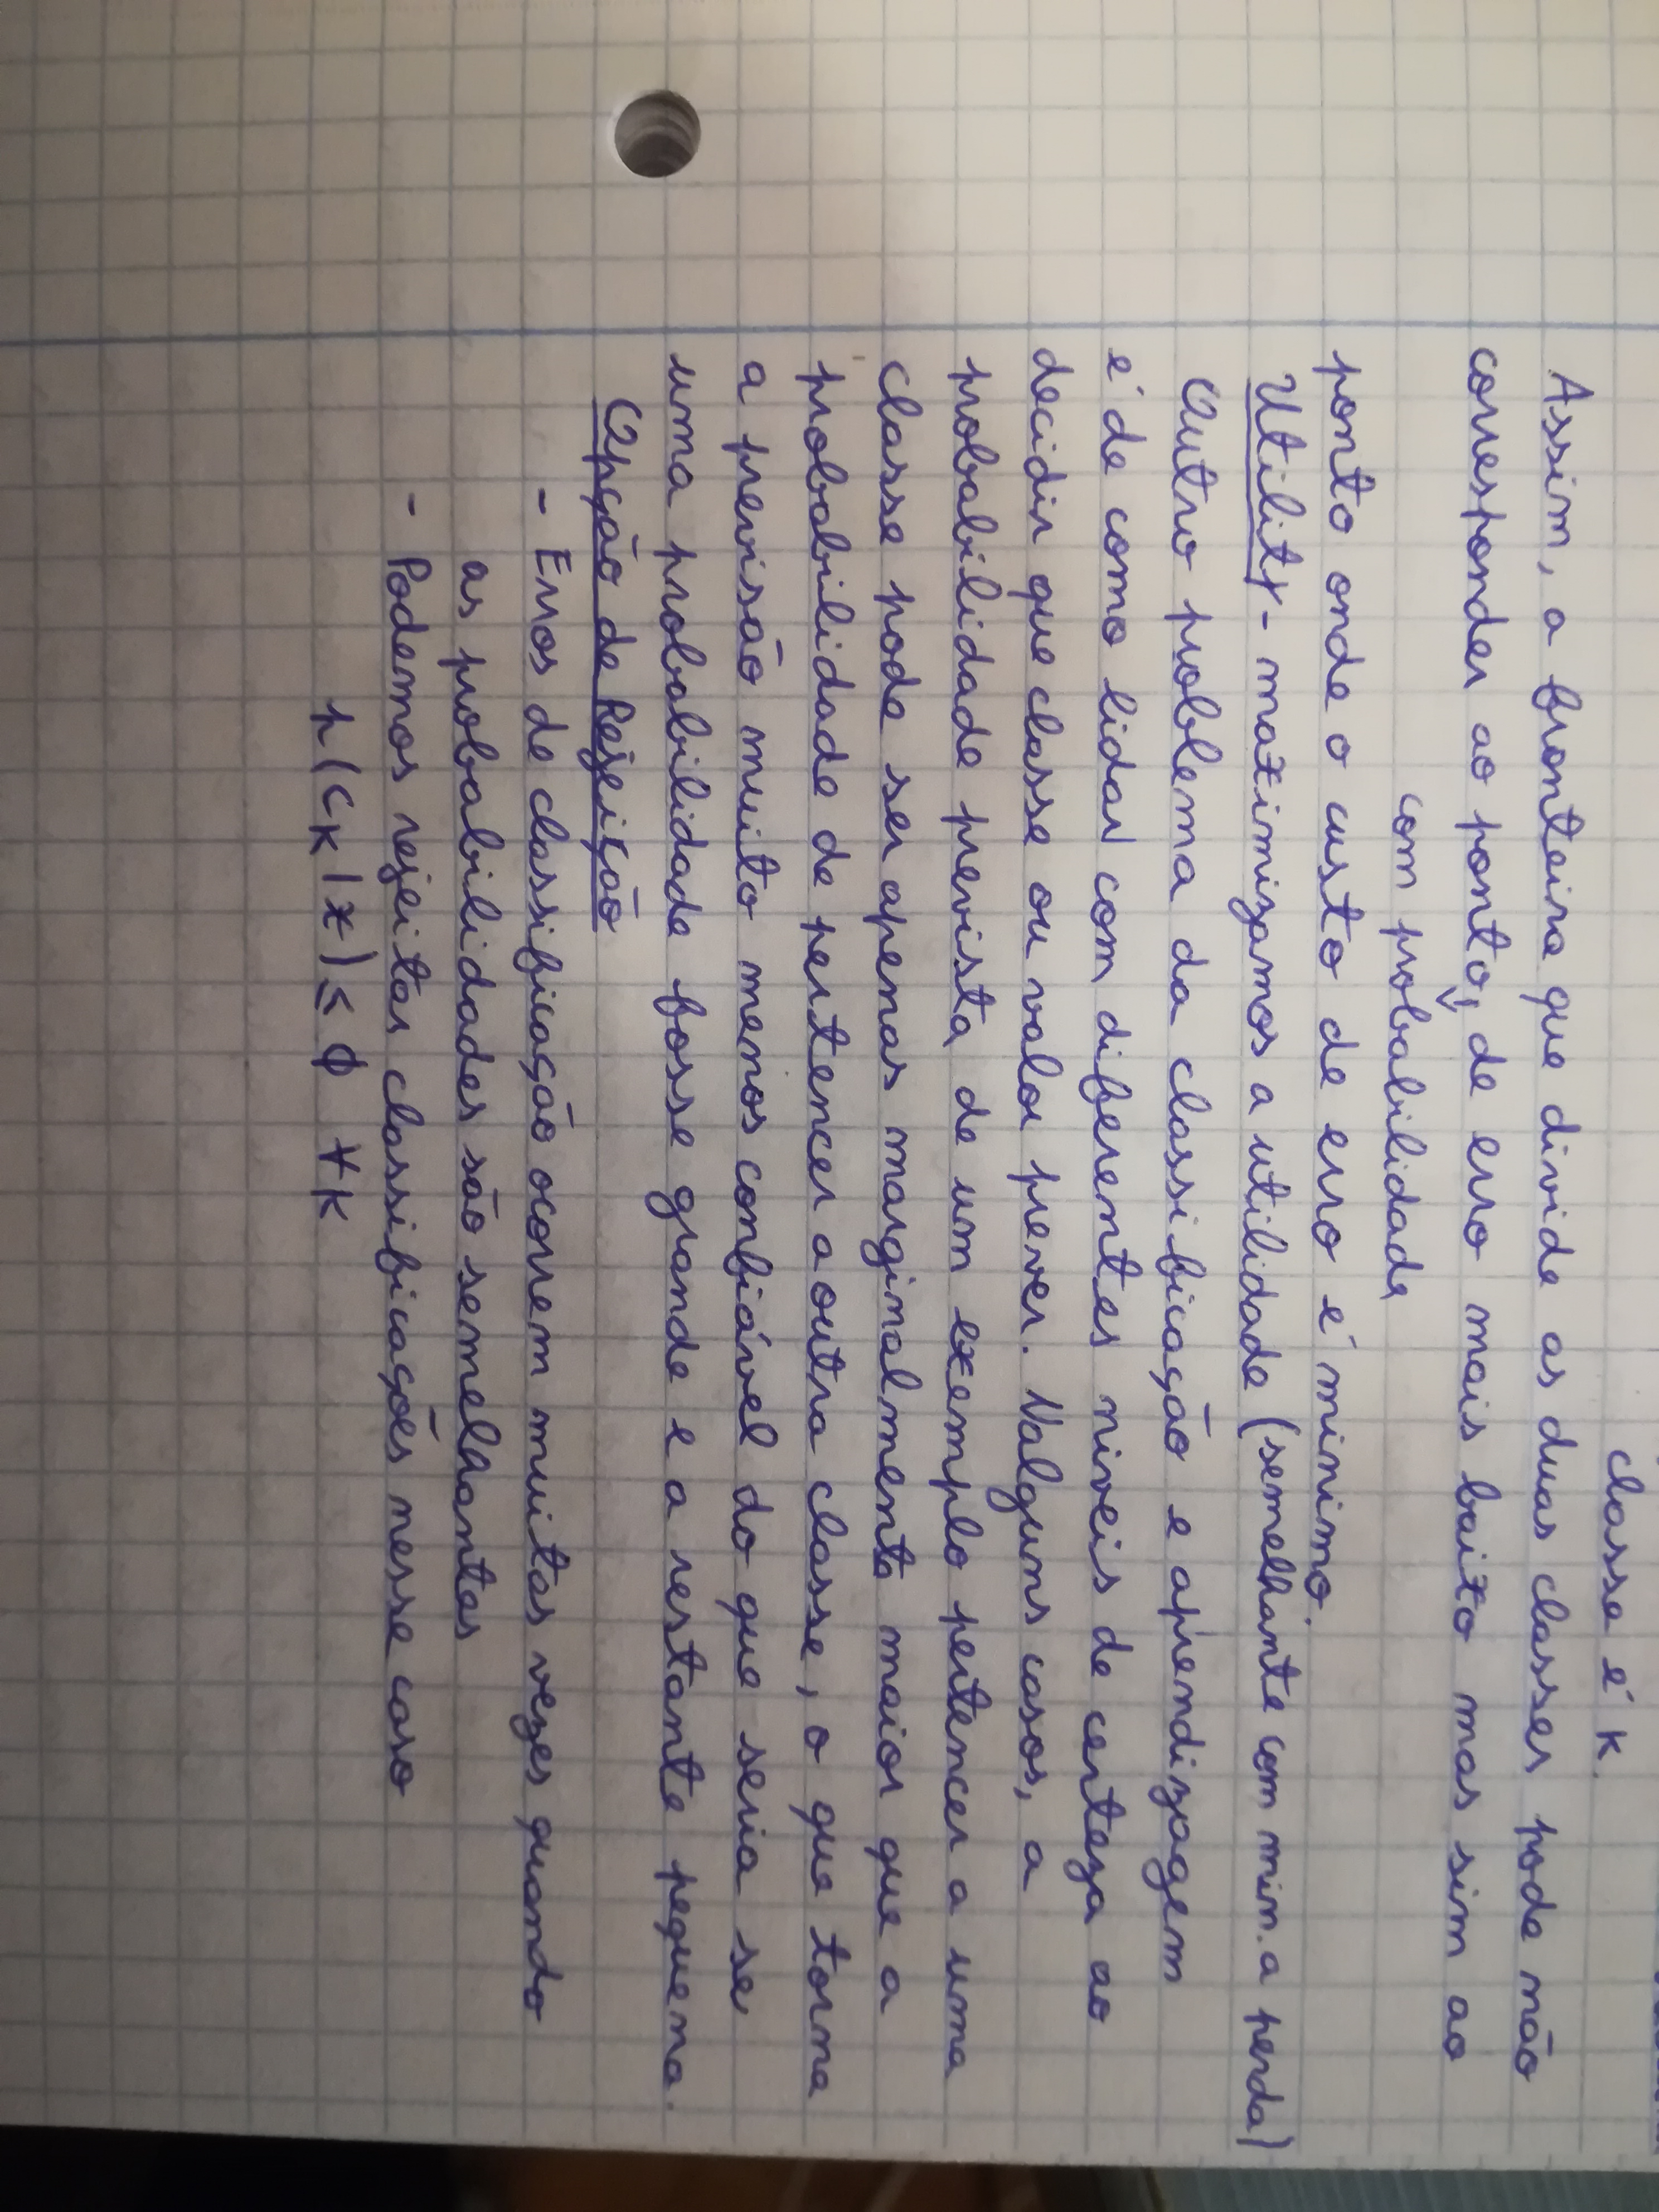 classe é k.
Assim, a fronteira que divide as duas classes pode não
corresponder ao ponto, de erro mais baixo mas sim ao
com probabilidade
ponto onde o custo de erro é minimo.
Utility - maximizamos a utilidade (semelhante com min. a perda)
Outro problema da classificação e aprendizagem
é de como lidar com diferentes niveis de certeza ao
decidir que classe ou valor prever. Nalguns casos, a
probabilidade prevista de um exemplo pertencer a uma
classe pode ser apenas marginalmente maior que a
probabilidade de pertencer a outra classe, o que torna
a previsão muito menos confiável do que seria se
uma probabilidade fosse grande e a restante pequena.
Opção de Rejeição
- Erros de classificação ocorrem muitas vezes quando
as probabilidades são semelhantes
- Podemos rejeitar classificações nesse caso
p(CK|x) ≤ ϕ ∀K